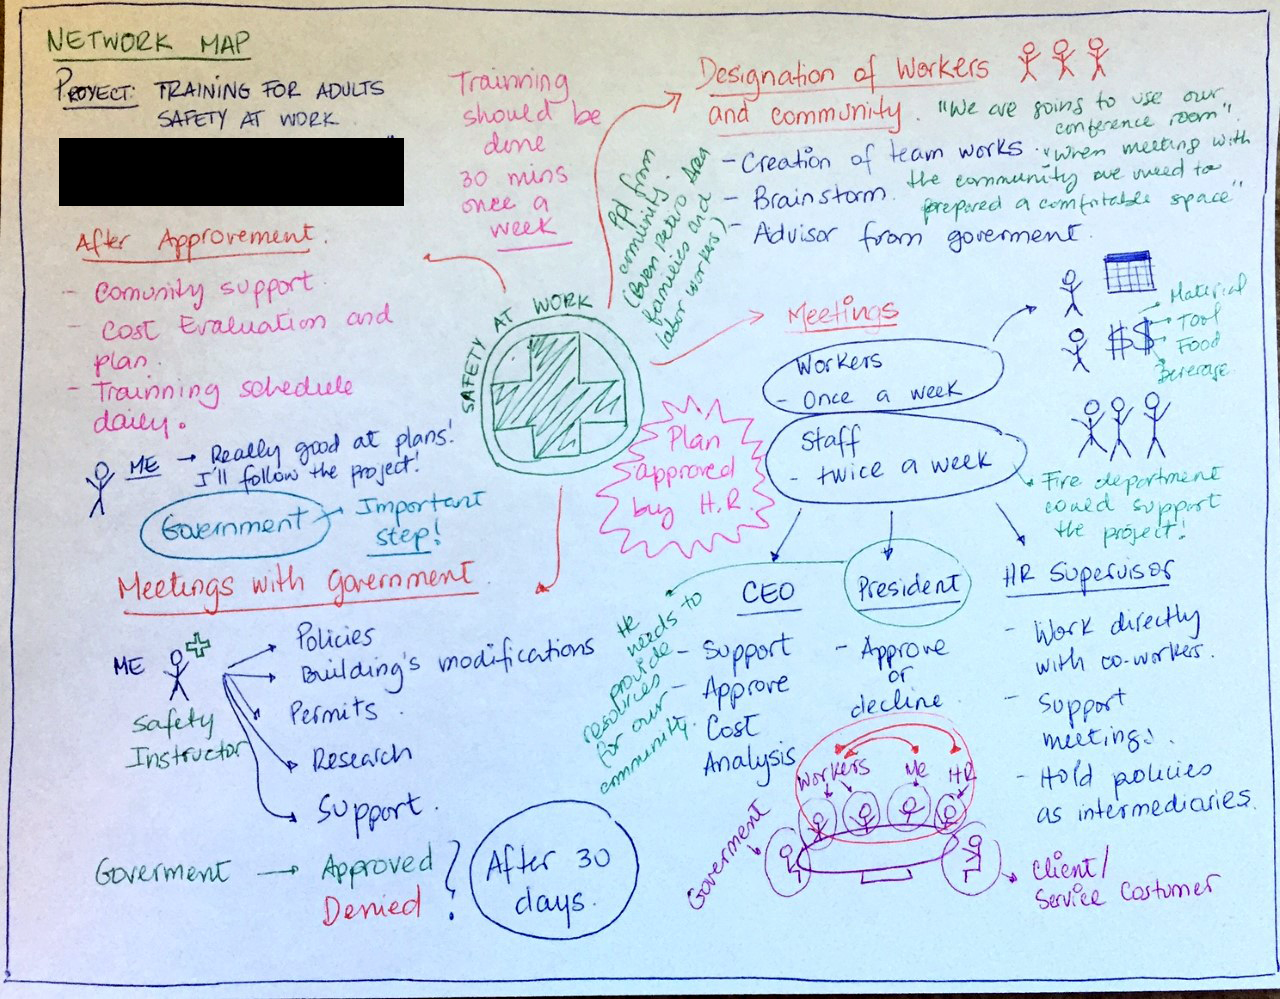 NETWORK MAP
PROYECT: TRAINING FOR ADULTS
SAFETY AT WORK
"
Trainning
should be
done
30 mins
once a
week
Designation of Workers
and community.
"We are going to use our
conference room".
"When meeting with
the community we need to
prepared a comfortable space"
- Creation of team works
- Brainstorm.
- Advisor from goverment.
Ppl from
comunity.
(Buen Retiro Area
families and
labor workers)
After Approvement.
- Comunity support.
- Cost Evaluation and
plan.
- Trainning schedule
daily.
ME → Really good at plans!
I'll follow the project!
Government → Important
step!
SAFETY AT WORK
Meetings
Workers
- Once a week
Staff
- twice a week
$$
Material
Tool
Food
Beverage.
Fire department
could support
the project!
Plan
approved
by H.R.
Meetings with government.
ME
Safety
Instructor
Policies
Building's modifications
Permits.
Research
Support.
Goverment → Approved
Denied
?
After 30
days.
He
needs to
provide
resources
for our
community.
CEO
- Support
- Approve
- Cost
Analysis
President
- Approve
or
decline
HR Supervisor
- Work directly
with co-workers.
- Support
meetings.
- Hold policies
as intermediaries.
Workers
Me
HR
Goverment
Client/
Service Costumer